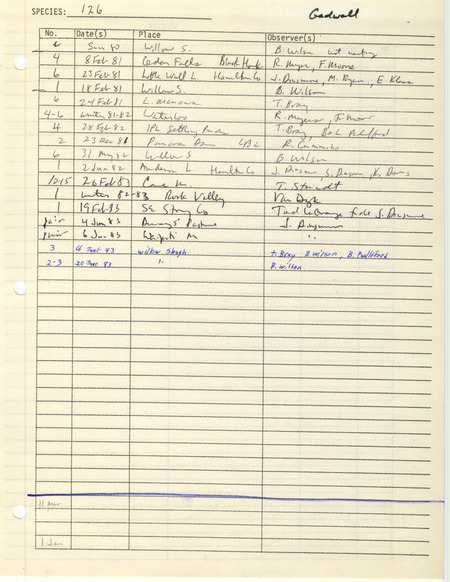 SPECIES: 126 Gadwall
No. Date(s) Place Observer(s)
Jan 80 Willow S. B. Wilson
4 8 Feb 81 Cedar Falls Black Hawk R. Myers, F. Moore
6 23 Feb 81 Little Wall L Hamilton Co J. Dinsmore, M. E
1 18 Feb 81 Willow S. B. Wilson
6 24 Feb 81 L. Manawa T. Bray
4-6 winter 81-82 Waterloo R. Myers, F. Moore
4 28 Feb 82 IPL Settling Ponds T. Bray, B+L Padelford
2 23 Dec 81 R. Cummins
6 31 May 82 Willow S B. Wilson
1 2 Jun 82 Anderson L Hamilton Co J. Dinsmore, S. Dinsmore, K.
1215 26 Feb 83 Cone M. T. Staudt
1 winter 82-83 Rock Valley Van Dyk
1 19 Feb 83 SE Story Co fide J. Dinsmore
pair 4 Jun 83 Pasture J. Dinsmore
pair 6 Jun 83 M "
3 16 83 Wilson Slough T. Bray B. Wilson, B. Padelford
2-3 20 83 " B. Wilson
11 Mar
1 Jan